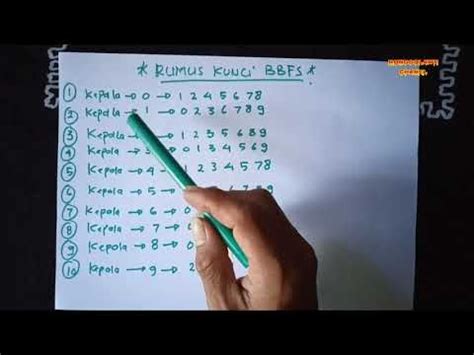 * RUMUS KUNCI BBFS *
1 Kepala → 0 → 1 2 4 5 6 7 8
2 Kepala → 1 → 0 2 3 6 7 8 9
3 Kepala → 1 2 3 5 6 8 9
4 Kepala → 3 → 0 1 3 4 5 6 9
5 Kepala → 4 → 1 2 4 5 7 8
6 Kepala → 5 → 7 8 9
7 Kepala → 6 → 0
8 Kepala → 7 → 0
9 Kepala → 8 → 0
10 Kepala → 9 → 2